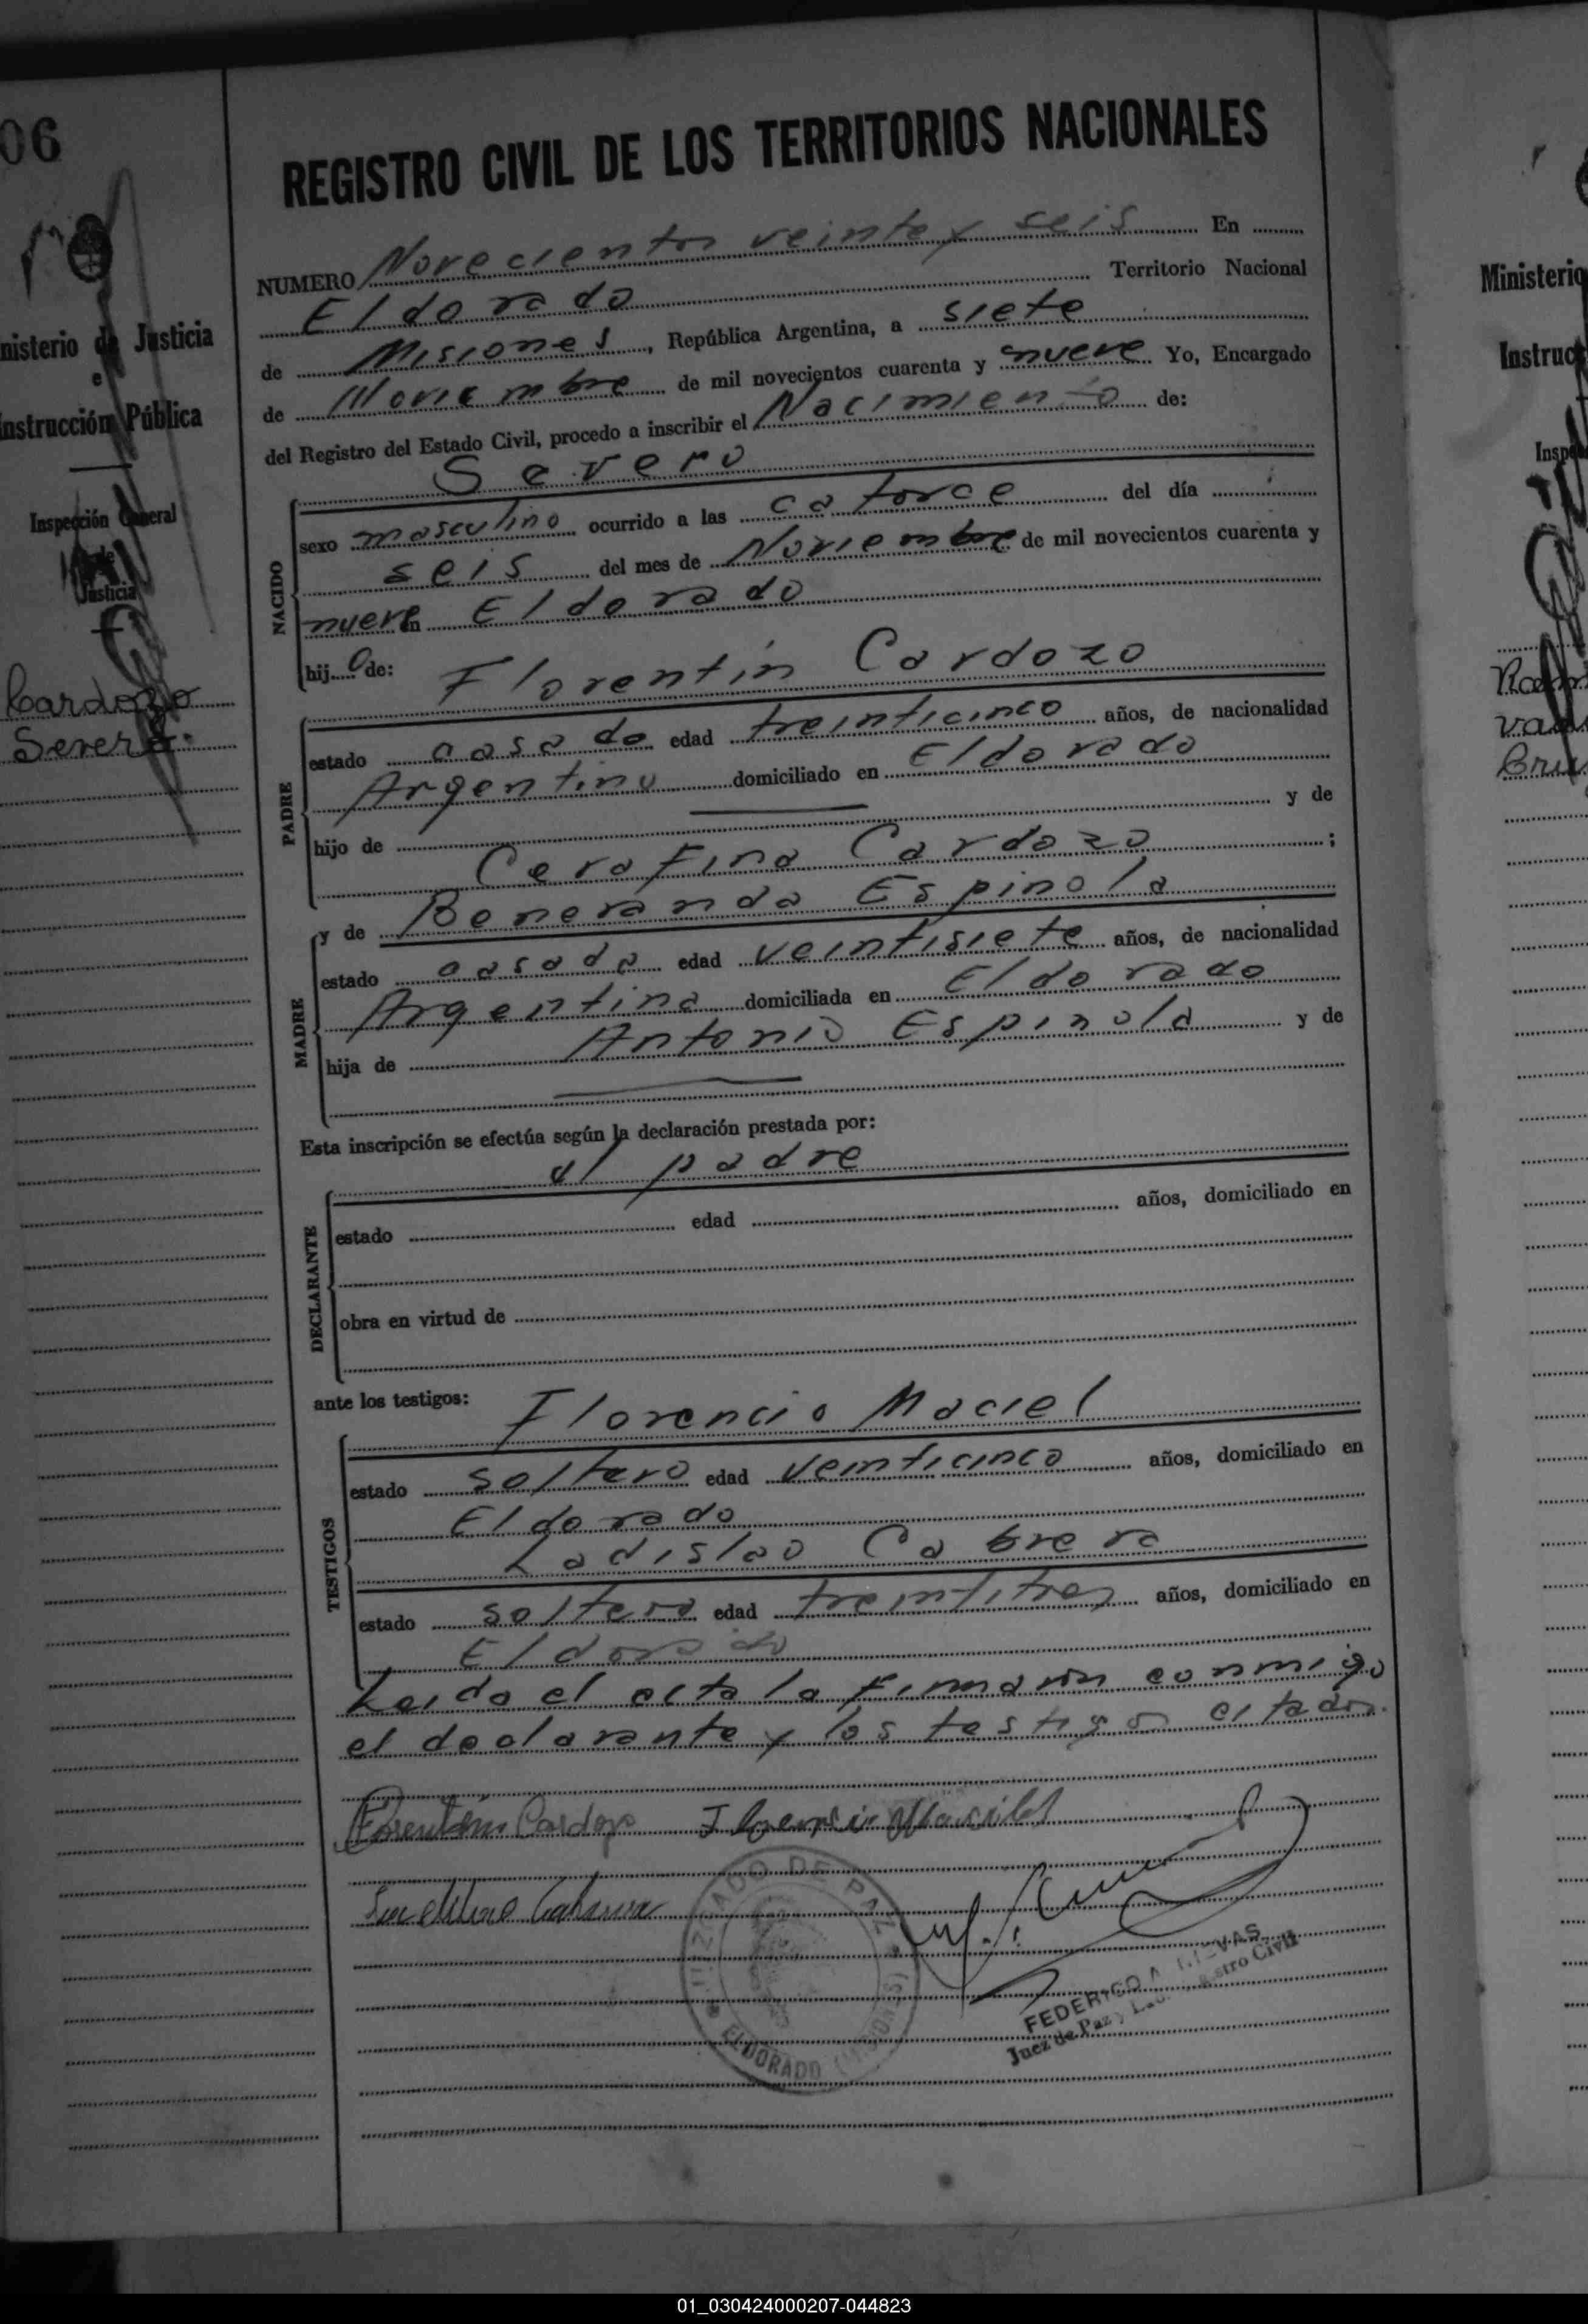 06
nisterio de Justicia
e
nstrucción Pública
Inspección General
de
Justicia
Cardozo
Severo
REGISTRO CIVIL DE LOS TERRITORIOS NACIONALES
NUMERO Novecientos veinte y seis En
Eldorado Territorio Nacional
de Misiones, República Argentina, a siete
de Noviembre de mil novecientos cuarenta y nueve Yo, Encargado
del Registro del Estado Civil, procedo a inscribir el Nacimiento de:
Severo
NACIDO
sexo masculino ocurrido a las catorce del día
seis del mes de Noviembre de mil novecientos cuarenta y
nueve en Eldorado
hijo de: Florentín Cardozo
PADRE
estado casado edad treinticinco años, de nacionalidad
Argentino domiciliado en Eldorado
hijo de y de
Cerafina Cardozo ;
y de Beneranda Espinola
MADRE
estado casada edad veintisiete años, de nacionalidad
Argentina domiciliada en Eldorado
hija de Antonio Espinola y de
Esta inscripción se efectúa según la declaración prestada por:
el padre
DECLARANTE
estado edad años, domiciliado en
obra en virtud de
ante los testigos: Florencio Maciel
TESTIGOS
estado soltero edad veinticinco años, domiciliado en
Eldorado
Ladislao Cabrera
estado soltero edad treintitres años, domiciliado en
Eldorado
Leida el acta la firmaron conmigo
el declarante y los testigos citados.
Florentín Cardozo Florencio Maciel
Cabrera
JUZGADO DE PAZ
ELDORADO (MISIONES)
FEDERICO A.
Juez de Paz y Registro Civil
Ministerio
Instruc
Insp
Ram
va
Cru
01_030424000207-044823